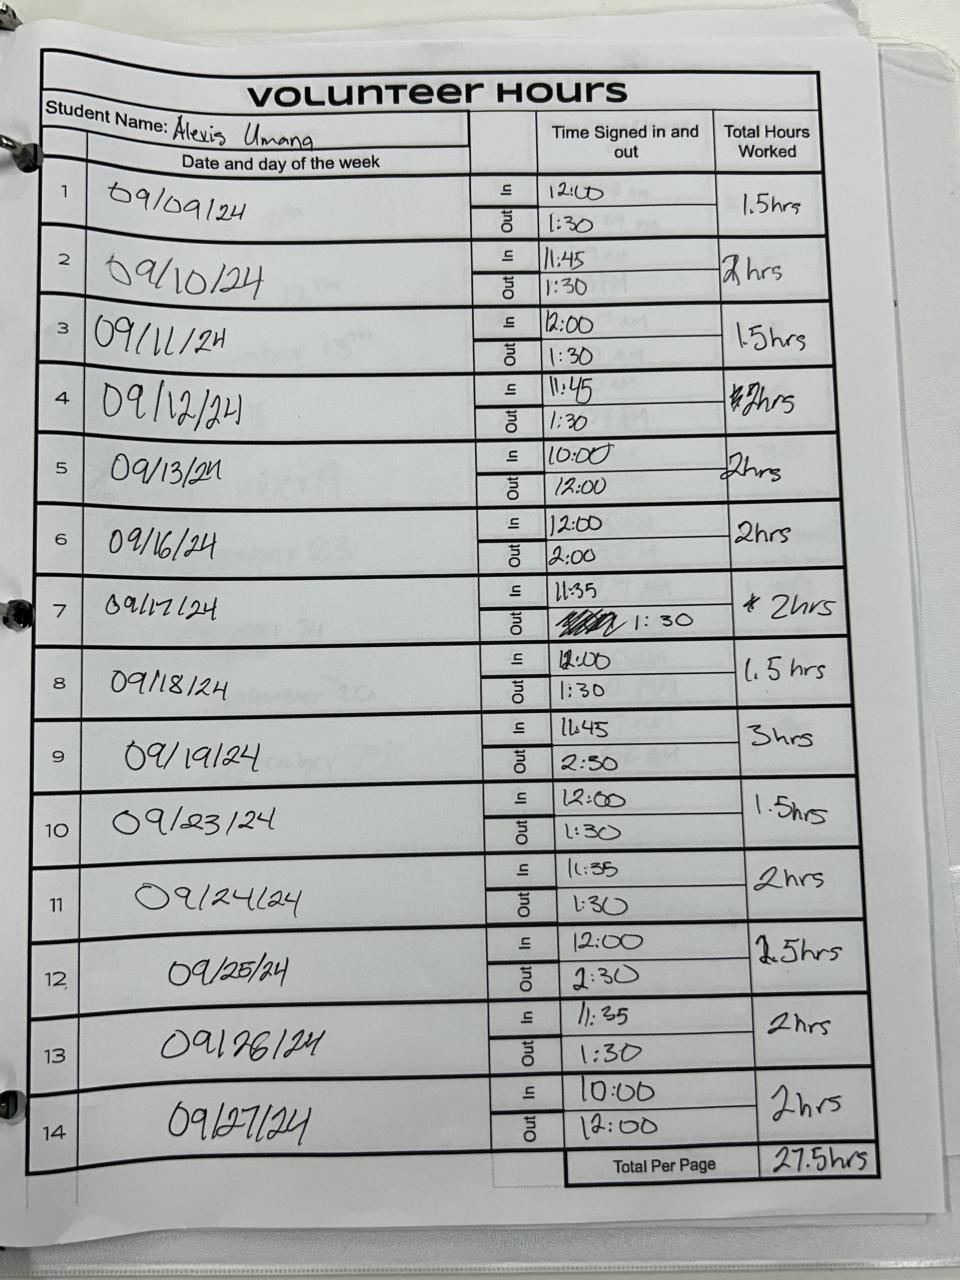 Volunteer Hours
Student Name: Alexis Umana
Date and day of the week
Time Signed in and out
Total Hours Worked
1 09/09/24 In 12:00 1.5hrs
Out 1:30
2 09/10/24 In 11:45 2hrs
Out 1:30
3 09/11/24 In 12:00 1.5hrs
Out 1:30
4 09/12/24 In 11:45 2hrs
Out 1:30
5 09/13/24 In 10:00 2hrs
Out 12:00
6 09/16/24 In 12:00 2hrs
Out 2:00
7 09/17/24 In 11:35 * 2hrs
Out 1:30
8 09/18/24 In 12:00 1.5hrs
Out 1:30
9 09/19/24 In 11:45 3hrs
Out 2:30
10 09/23/24 In 12:00 1.5hrs
Out 1:30
11 09/24/24 In 11:35 2hrs
Out 1:30
12 09/25/24 In 12:00 2.5hrs
Out 2:30
13 09/26/24 In 11:35 2hrs
Out 1:30
14 09/27/24 In 10:00 2hrs
Out 12:00
Total Per Page 27.5hrs